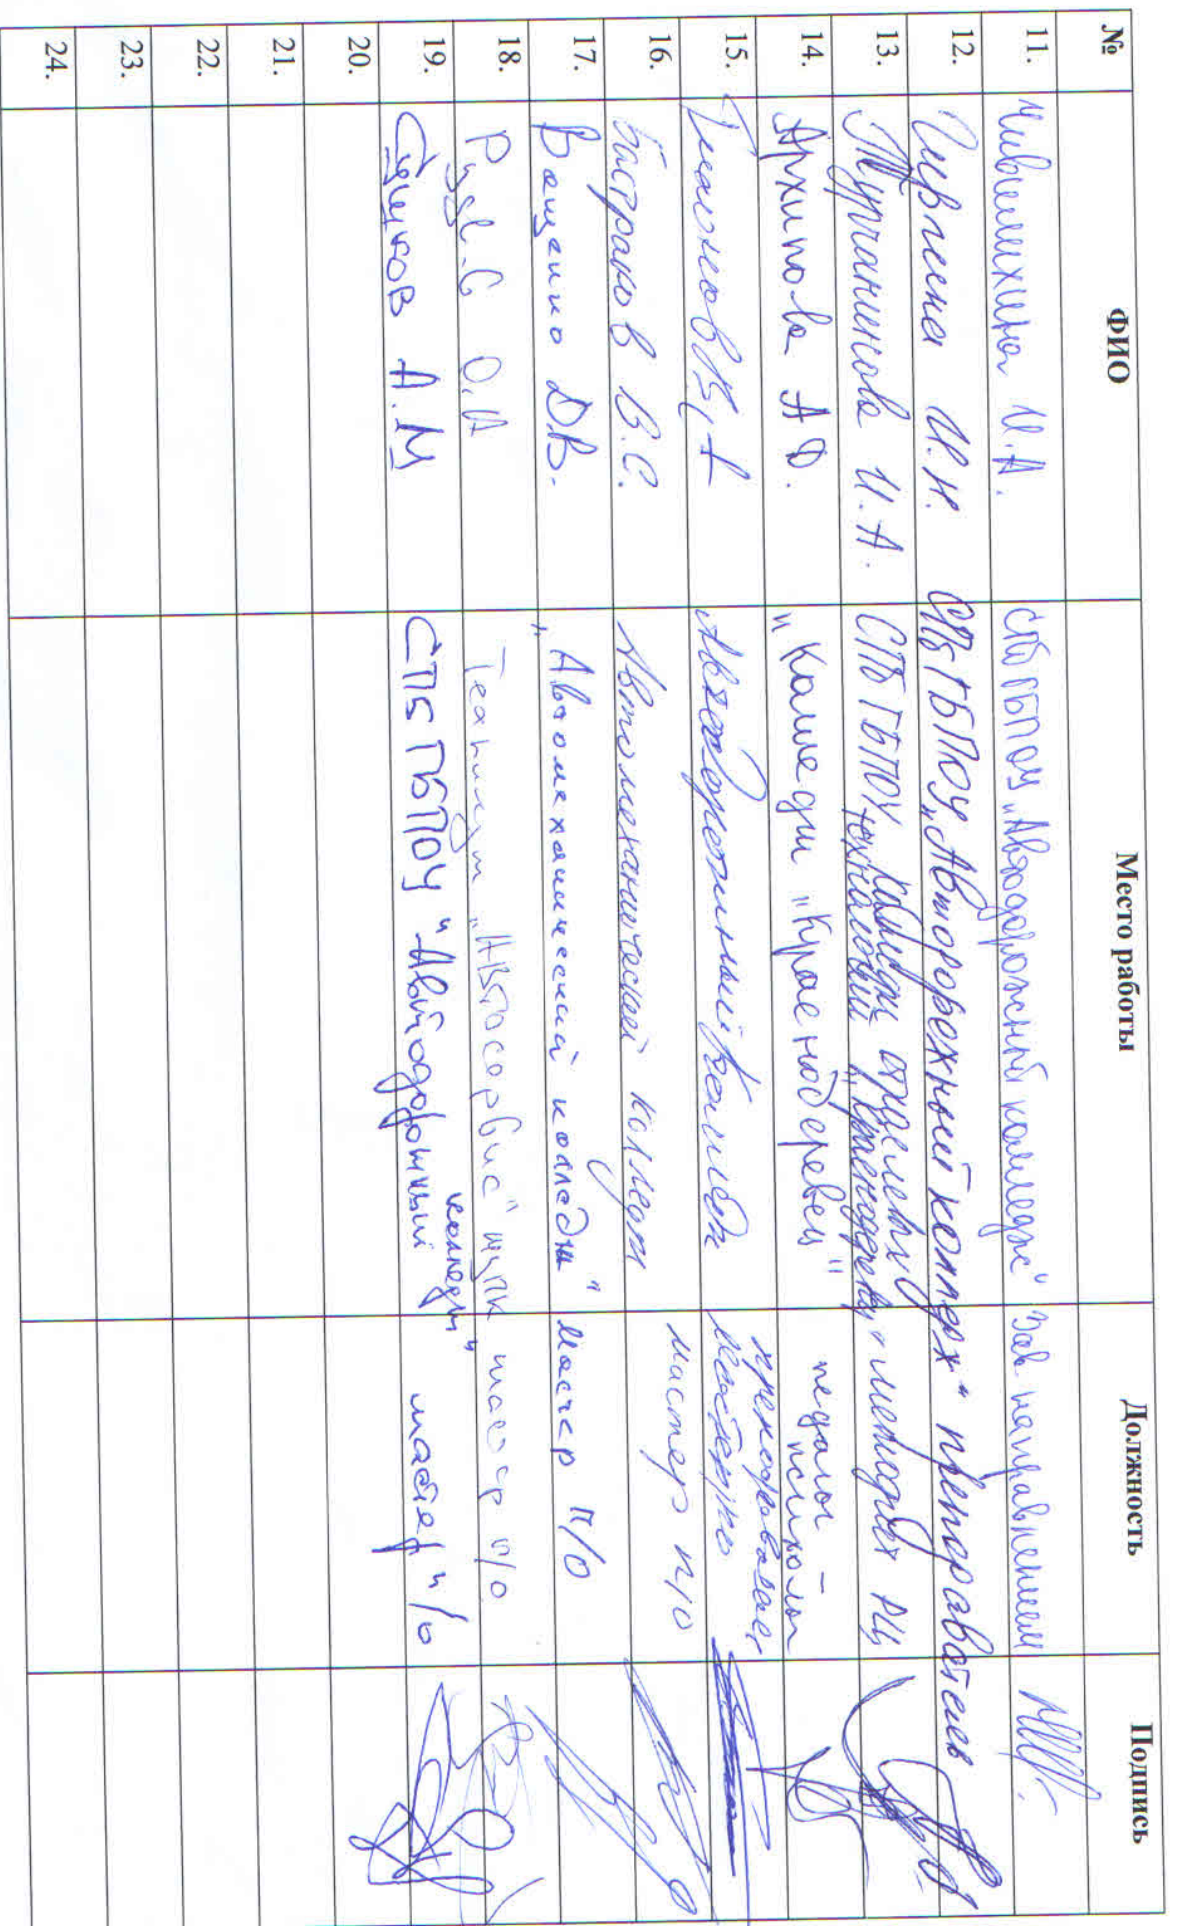 № ФИО Место работы Должность Подпись
11. И.А. СПб ГБПОУ "Автодорожный колледж" Зав. направлением
12. И.Н. СПб ГБПОУ "Автодорожный колледж" преподаватель
13. Турчанинова И.А. СПб ГБПОУ колледж отраслевых технологий "Краснодеревец" методист РЦ
14. Архипова А.Ф. "Колледж "Краснодеревец" педагог психолог
15. Автодорожный колледж преподаватель мастер п/о
16. Бастраков В.С. Автомеханический колледж мастер п/о
17. Ващенко Д.В. "Автомеханический колледж" мастер п/о
18. О.А Техникум "Автосервис" МЦПК мастер п/о
19. А.М СПБ ГБПОУ "Автодорожный колледж" мастер п/о
20.
21.
22.
23.
24.